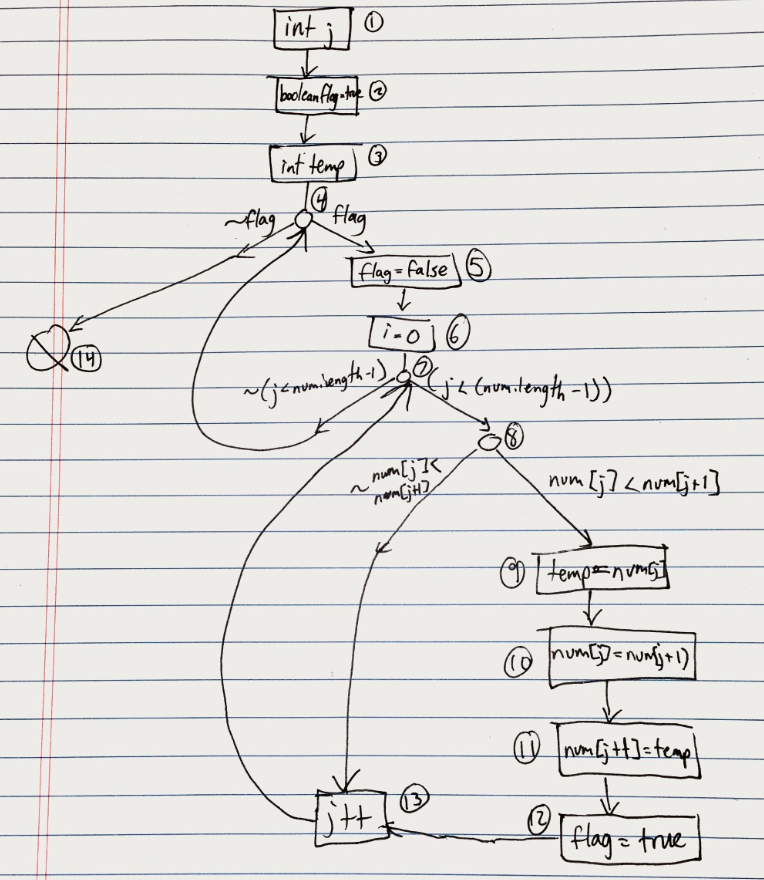 int j ①
boolean flag=true ②
int temp ③
④
~flag flag
flag=false ⑤
i=0 ⑥
⑭
⑦
~(j<num.length-1) (j<(num.length-1))
⑧
~num[j]<
num[j+1]
num[j]<num[j+1]
⑨ temp=num[j]
⑩ num[j]=num[j+1)
⑪ num[j++]=temp
j++ ⑬
⑫ flag=true